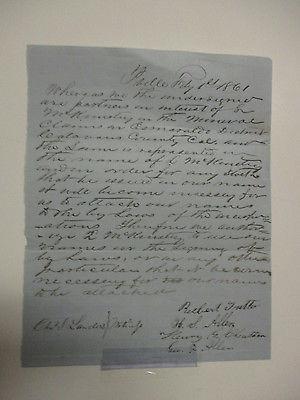 Feby 1st 1861
Whereas we the undersigned
are partners in interest of
McKinstry in the Mineral
Claims in Esmeralda District
Calaveras County Cal. and
the Same is represented in
the name of McKinstry
and in order for any
that be issued in our name
it will become necessary for
us to attach our names
to the by Laws of the incorpo-
rations. Therefore we author-
McKinstry to use our
names in the signing of
by Laws, or in any other
particular that it becomes
necessary for us our names
to be attached
Robert
Chas. S. Sanders Witness H. S. Allen
Henry G.
Geo. F. Allen